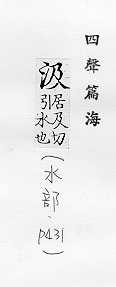 四聲篇海
汲
居及切
引水也
(水部、p431)